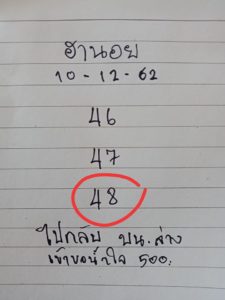 ฮานอย
10-12-62
46
47
48
ไปกลับ บน.ล่าง
เข้าขอน้ำใจ 500.